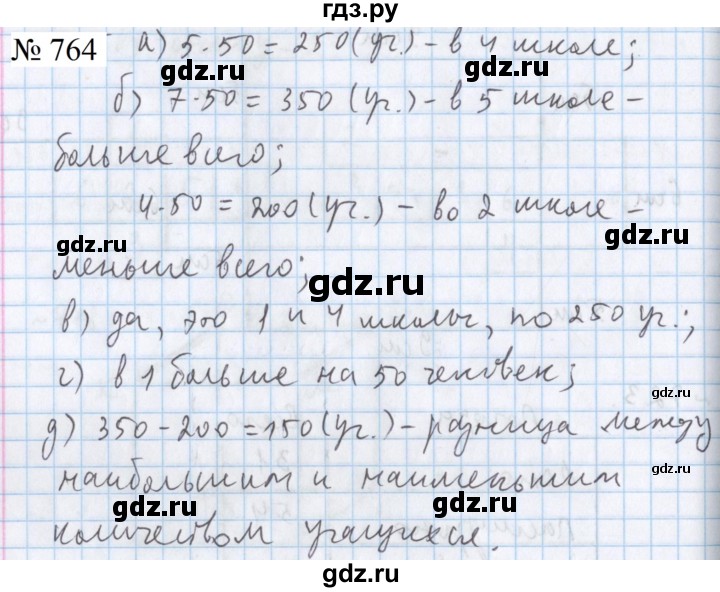 гдз.ру
№ 764
а) 5·50 = 250 (уч.) - в 4 школе;
gdz.ru gdz.ru
б) 7·50 = 350 (уч.) - в 5 школе -
gdz.ru
больше всего;
4·50 = 200 (уч.) - во 2 школе -
gdz.ru gdz.ru
меньше всего;
gdz.ru
в) да, это 1 и 4 школы, по 250 уч.;
г) в 1 больше на 50 человек;
gdz.ru gdz.ru
д) 350 - 200 = 150 (уч.) - разница между
gdz.ru
наибольшим и наименьшим
gdz.ru
количеством учащихся.
gdz.ru
gdz.ru